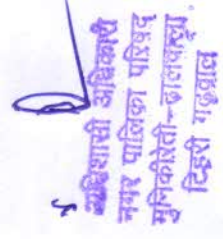 अधिशासी अधिकारी
नगर पालिका परिषद्
मुनिकीरेती-ढालवाला
टिहरी गढ़वाल